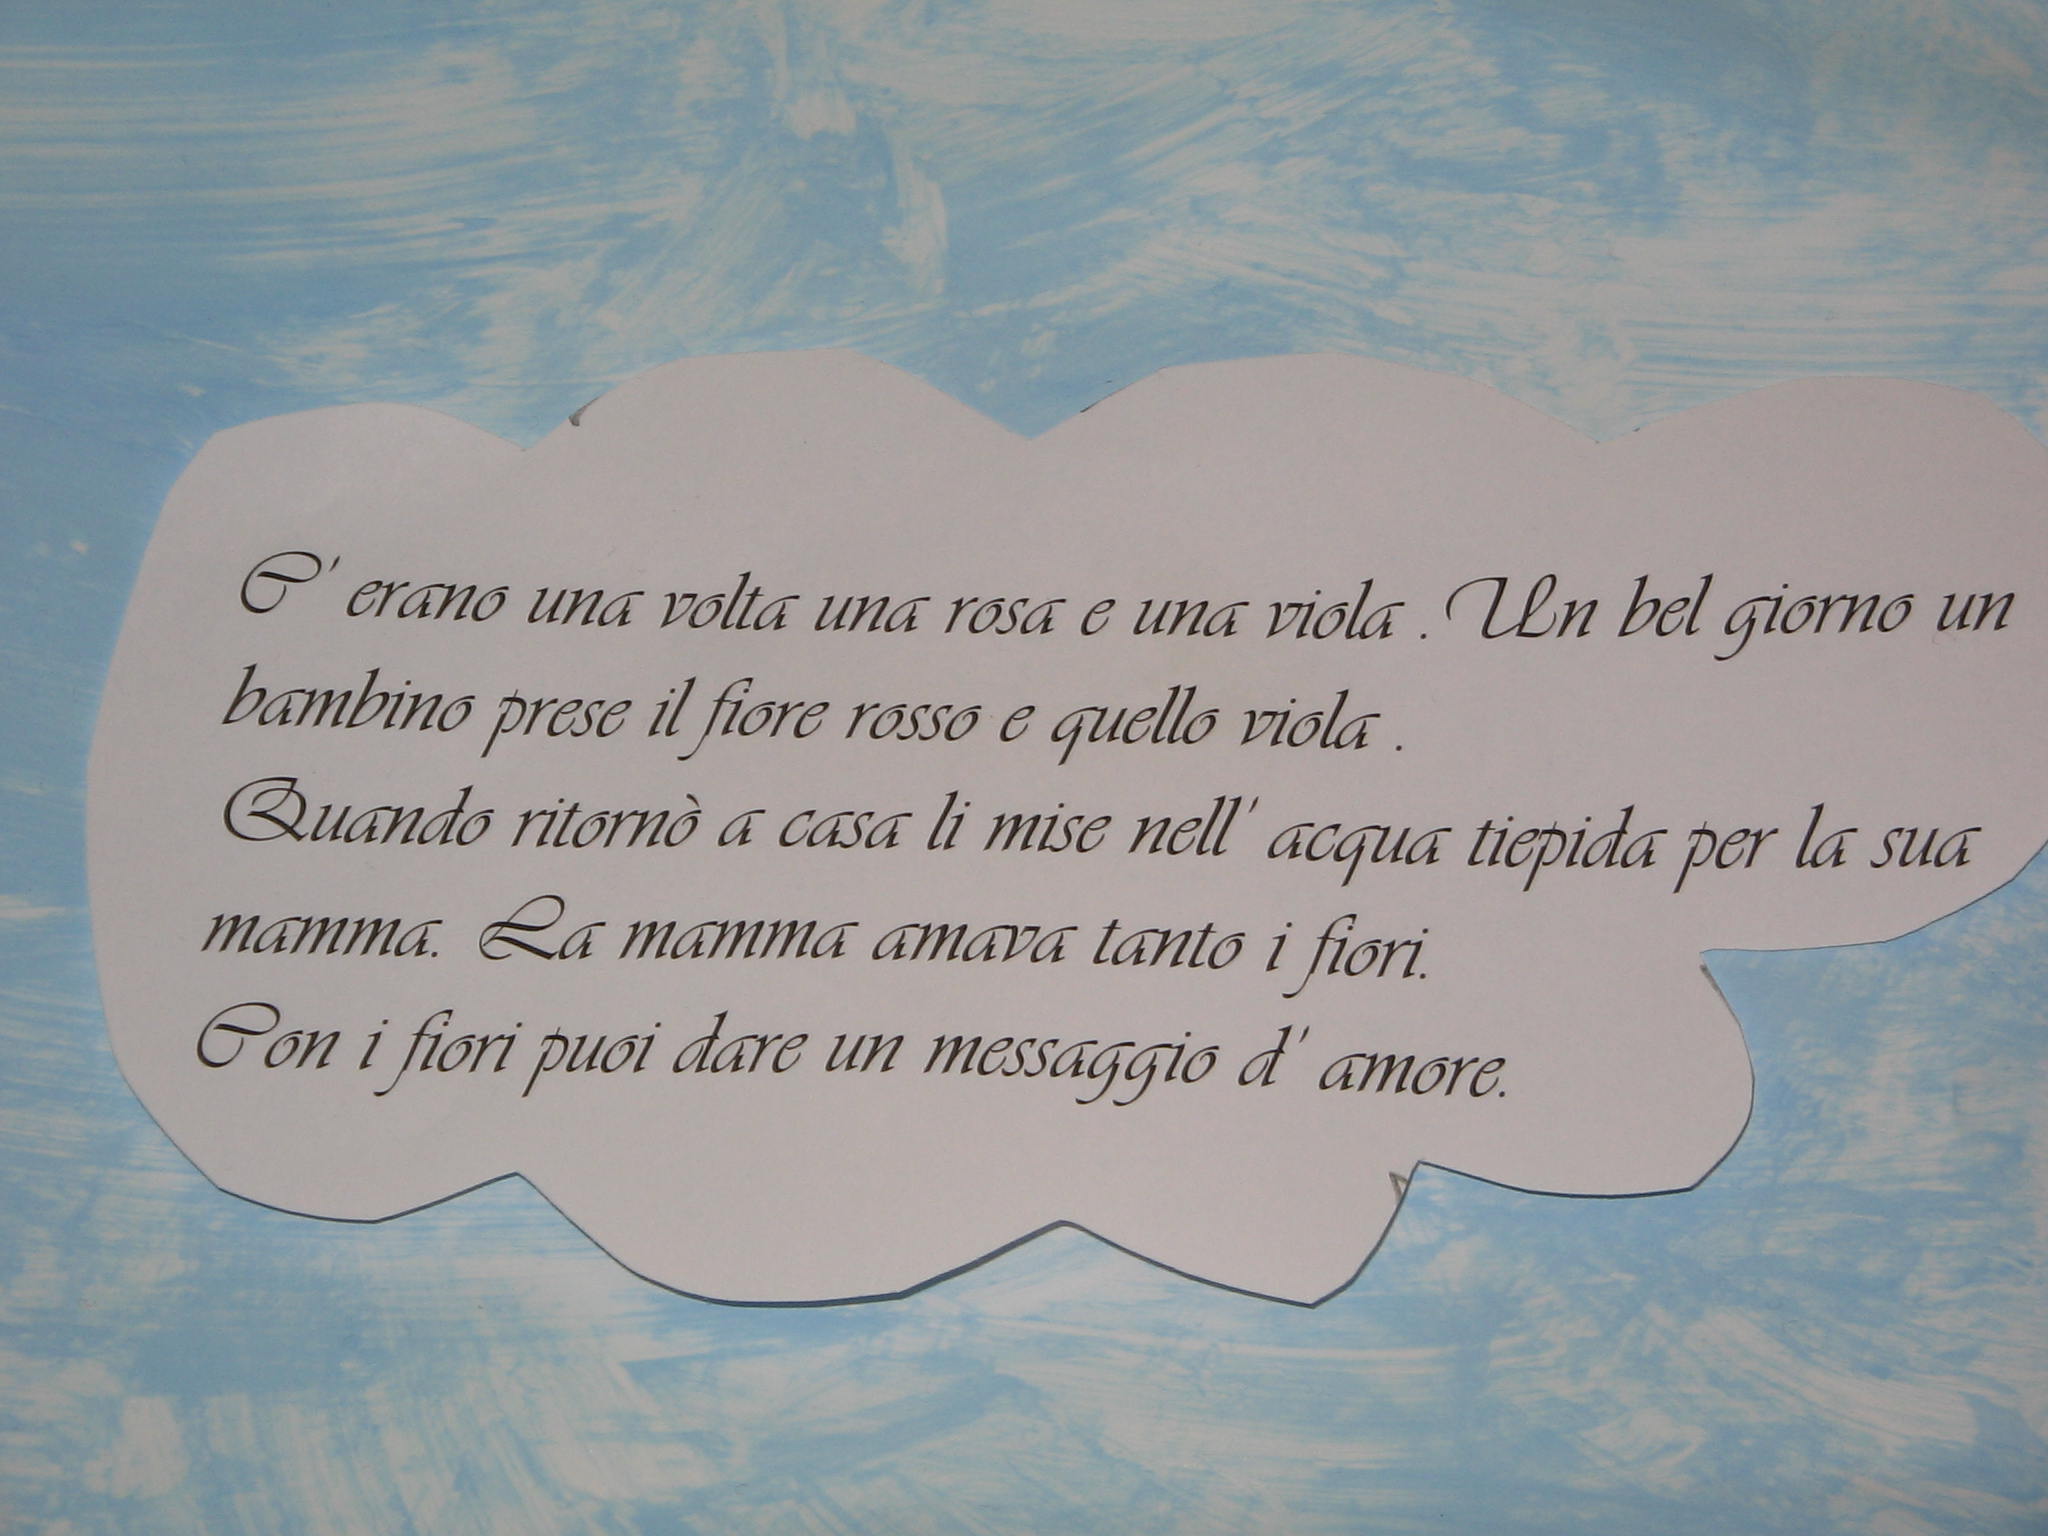 C' erano una volta una rosa e una viola . Un bel giorno un
bambino prese il fiore rosso e quello viola .
Quando ritornò a casa li mise nell' acqua tiepida per la sua
mamma. La mamma amava tanto i fiori.
Con i fiori puoi dare un messaggio d' amore.